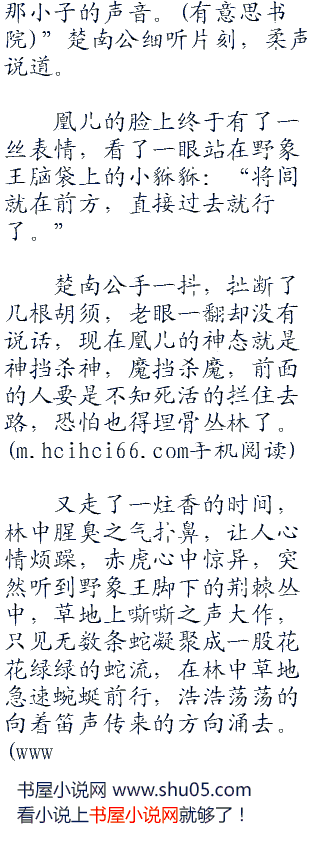 那小子的声音。(有意思书
院)”楚南公细听片刻，柔声
说道。
凰儿的脸上终于有了一
丝表情，看了一眼站在野象
王脑袋上的小貅貅：“将闾
就在前方，直接过去就行
了。”
楚南公手一抖，扯断了
几根胡须，老眼一翻却没有
说话，现在凰儿的神态就是
神挡杀神，魔挡杀魔，前面
的人要是不知死活的拦住去
路，恐怕也得埋骨丛林了。
(m.hcihci66.com手机阅读)
又走了一炷香的时间，
林中腥臭之气扑鼻，让人心
情烦躁，赤虎心中惊异，突
然听到野象王脚下的荆棘丛
中，草地上嘶嘶之声大作，
只见无数条蛇凝聚成一股花
花绿绿的蛇流，在林中草地
急速蜿蜒前行，浩浩荡荡的
向着笛声传来的方向涌去。
(www
书屋小说网 www.shu05.com
看小说上书屋小说网就够了！